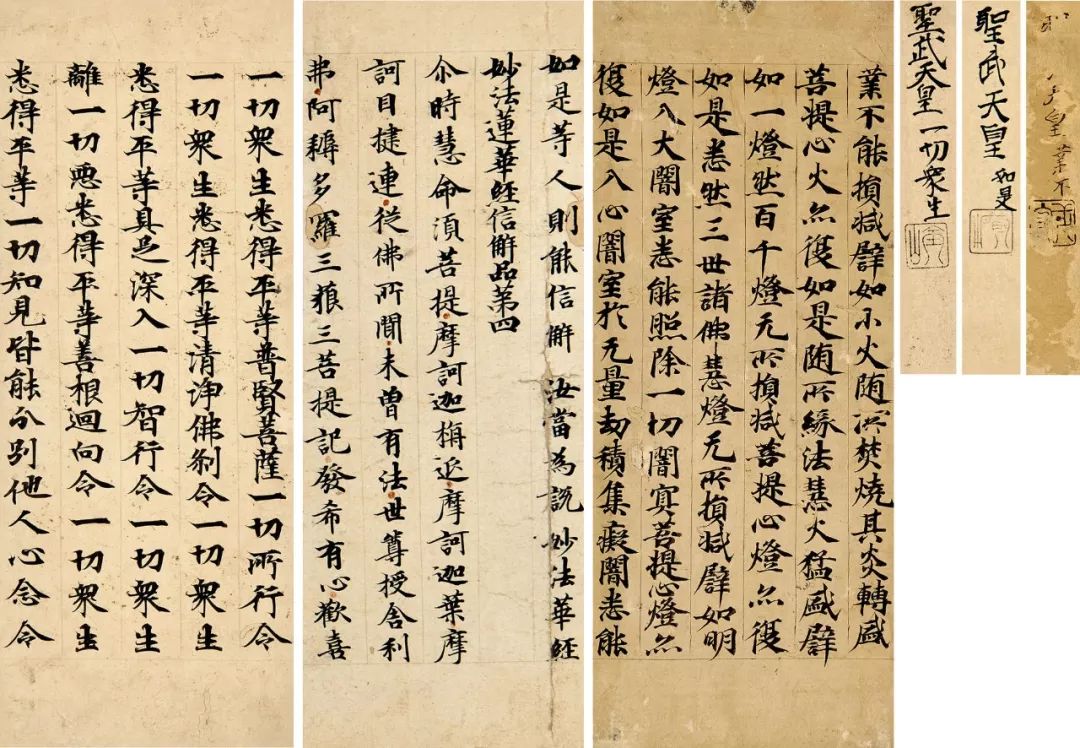 皇業不
聖武天皇 如是
聖武天皇一切衆生
業不能損減譬如小火随所焚燒其炎轉盛
菩提心火亦復如是随所縁法慧火猛盛譬
如一燈然百千燈无所損減菩提心燈亦復
如是悉然三世諸佛慧燈无所損減譬如明
燈入大闇室悉能照除一切闇冥菩提心燈亦
復如是入心闇室於无量劫積集癡闇悉能
如是等人則能信解 汝當為説 妙法華經
妙法蓮華経信解品第四
尒時慧命湏菩提摩訶迦栴延摩訶迦葉摩
訶目揵連從佛所聞未曾有法世尊授舎利
弗阿耨多羅三藐三菩提記發希有心歡喜
一切衆生悉得平等普賢菩薩一切所行令
一切衆生悉得平等清浄佛刹令一切衆生
悉得平等具足深入一切智行令一切衆生
離一切悪悉得平等善根迴向令一切衆生
悉得平等一切知見皆能分別他人心念令